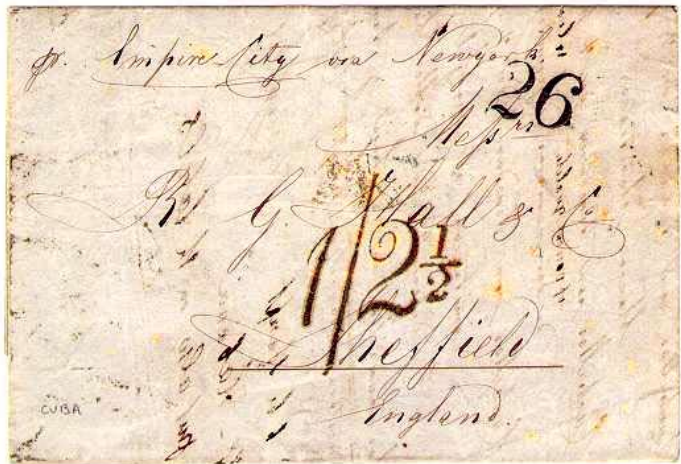 pr. Empire City via Newyork.
26
Messrs
R G. Hall & Co
1/2½
Sheffield
England.
CUBA